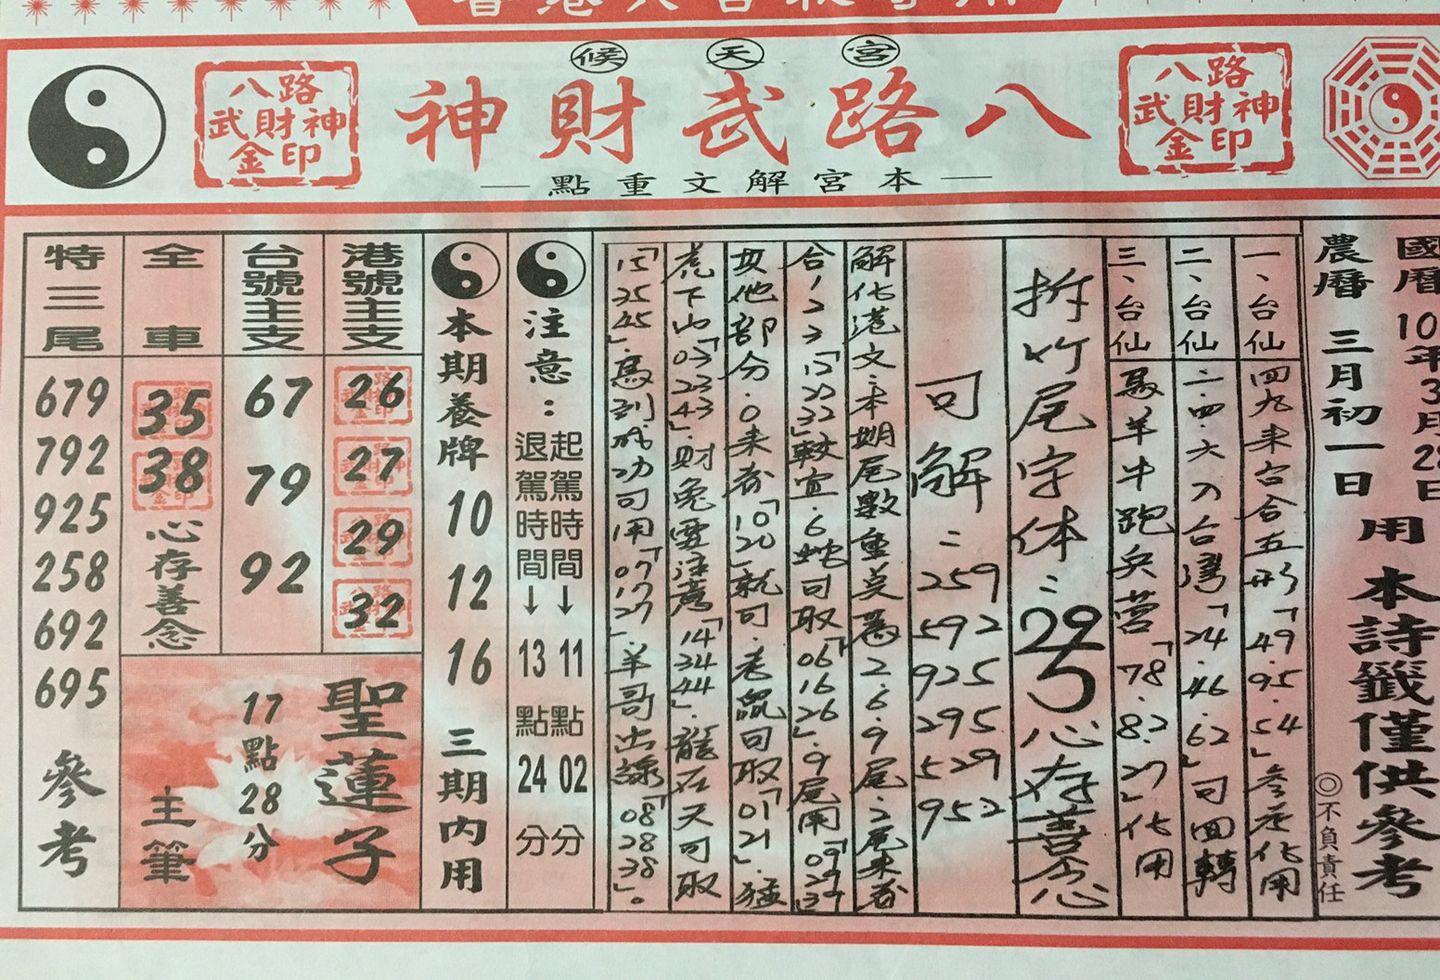 候天宮
八路武財神
本宮解文重點
八路
武財神
金印
八路
武財神
金印
本詩籤僅供參考
◎不負責任
農曆三月初一日用
一、台仙 四九來台合五形「49.95.54」參考化用
二、台仙 二.四.六入台灣「24.46.62」可回轉
三、台仙 馬羊牛跑兵營「78.82.27」化用
拆竹尾字体：295心存善念
可解：259
592
925
295
529
952
解化港文：本期尾數重莫為2.6.9尾.2尾來看
合123「12 22 32」較宜.6蛇可取「06 16 26」.9尾用「09 29 39」
其他部分.0來看「10 20」就可.老鼠可取「01 21」.猛
虎下山「03 23 43」.財兔要注意「14 34 44」.龍在天可取
「15 35 45」馬到成功可用「07 17 27」.羊哥出線「08 28 38」。
注意：
起駕時間↓11點02分
退駕時間↓13點24分
本期養牌 10 12 16 三期內用
港號主支
26
27
29
32
台號主支
67
79
92
全車
35
38
心存善念
聖蓮子
17點28分
主筆
特三尾
679
792
925
258
692
695
參考